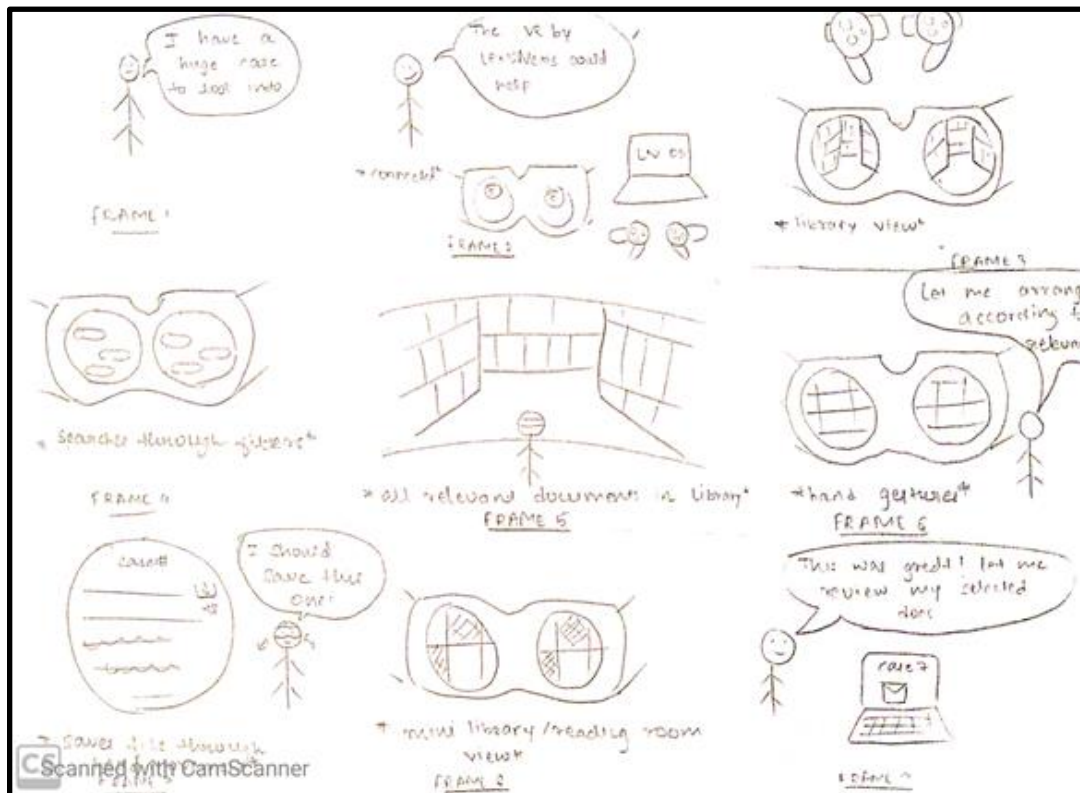 I have a
huge case
to look into
FRAME 1
The VR by
could
help
*connected*
LN
FRAME 2
*library view*
FRAME 3
* searches through
FRAME 4
*all relevant documents in library*
FRAME 5
Let me arrang
according to
*hand gestures*
FRAME 6
case#
I should
save this
one!
* saves this through
FRAME
* mini library/reading room
view*
FRAME 8
This was great! let me
review my selected
docs
case 7
FRAME
CS
Scanned with CamScanner